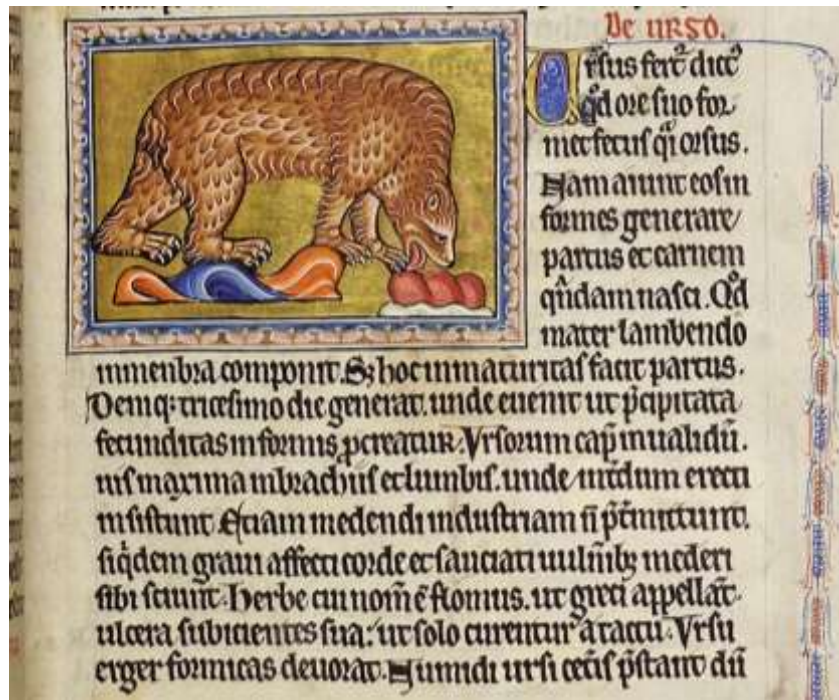 De urso.
Ursus fert᾿ dict᾿
qd̾ ore suo for
met fetus qͥ orsus.
Nam aiunt eos in
formes generare
partus et carnem
qn̄dam nasci. Qd̾
mater lambendo
in menbra componit. Sꝫ hoc inmaturitas facit partus.
Deniqꝫ tricesimo die generat. unde euenit ut p̄cipitata
fecunditas informis ꝓcreatur. Vrsorum cap̄ inualidū.
uis maxima in brachiis et lumbis. unde int̄dum erecti
insistunt. Etiam medendi industriam n̄ p̄t̄mittunt.
siq̄dem graui affecti corde et sauciati uuln̄ibꝫ mederi
sibi sciunt. Herbe cui nom̄ ē flomus. ut greci appellāt.
ulcera subicientes sua. ut solo curentur a tactu. Vrsu
eger formicas deuorat. Numidi ursi cet̄is p̄stant dū